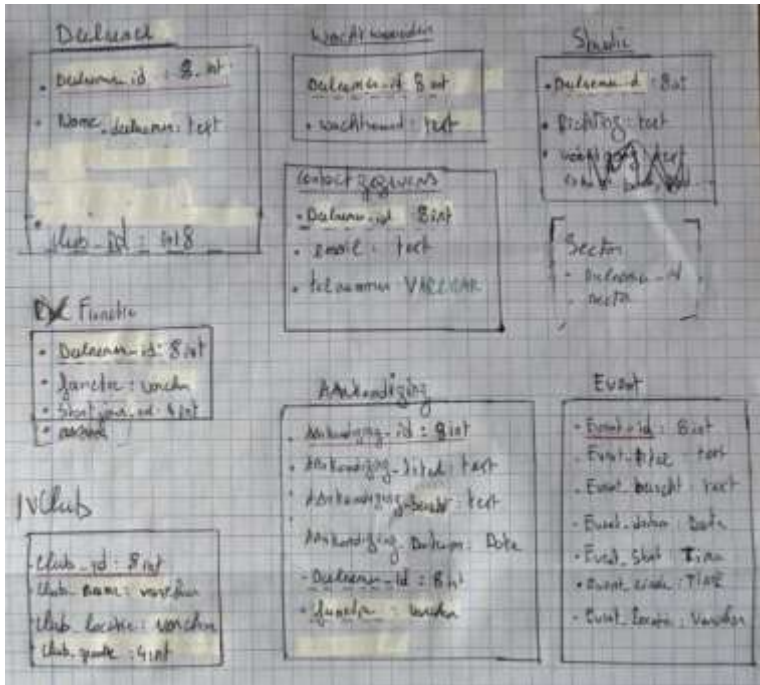 Deelnemer
Deelnemer_id : 8 int
Name_deelnemer: text
Club_id : int 8
Wachtwoorden
Deelnemer_id 8 int
wachtwoord : text
Studie
Deelnemer_id : 8int
Richting : text
Contact gegevens
Deelnemer_id 8int
email : text
telnummer VARCHAR
Sector
Deelnemer_id
sector
Functie
Deelnemer_id: 8 int
functie : varchar
Start_jaar_ : 4 int
Aankondiging
Aankondiging_id : 8 int
Aankondiging_titel : text
Aankondiging_bericht : text
Aankondiging_Datum : Date
Deelnemer_id : 8 int
functie : varchar
Event
Event_id : 8 int
Event_titel : text
Event_bericht : text
Event_datum : Date
Event_Start : Time
Event_einde : TIME
Event_locatie : Varchar
Club
Club_id : 8 int
Club_name : varchar
Club_locatie : varchar
Club_ : 4int